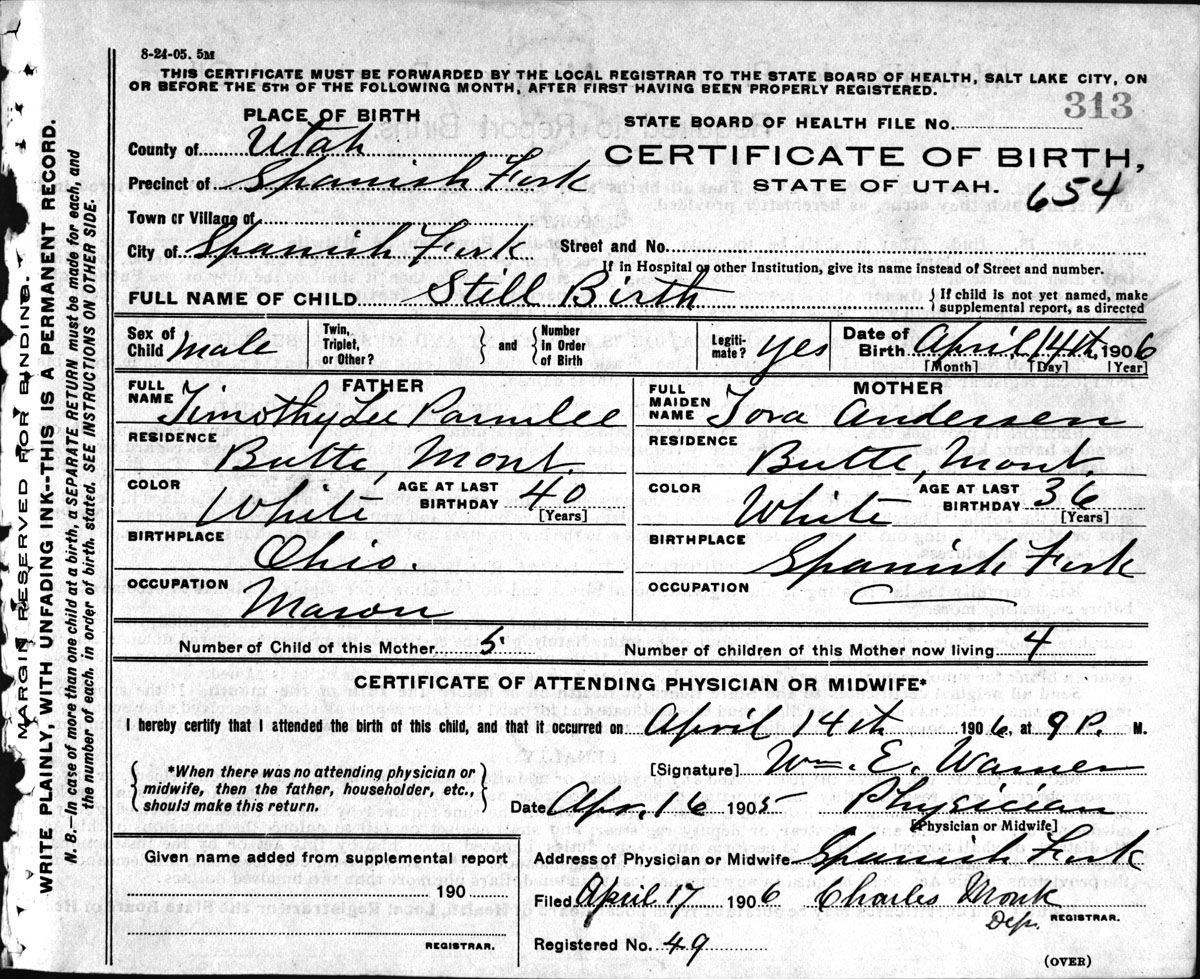 8-24-05. 5M
THIS CERTIFICATE MUST BE FORWARDED BY THE LOCAL REGISTRAR TO THE STATE BOARD OF HEALTH, SALT LAKE CITY, ON
OR BEFORE THE 5TH OF THE FOLLOWING MONTH, AFTER FIRST HAVING BEEN PROPERLY REGISTERED.
313
PLACE OF BIRTH
STATE BOARD OF HEALTH FILE No.
County of Utah
CERTIFICATE OF BIRTH,
Precinct of Spanish Fork
STATE OF UTAH. 654
Town or Village of
City of Spanish Fork Street and No.
If in Hospital or other Institution, give its name instead of Street and number.
FULL NAME OF CHILD Still Birth { If child is not yet named, make
supplemental report, as directed
Sex of Child Male
Twin, Triplet, or Other? } and { Number in Order of Birth
Legiti-mate? yes
Date of Birth April 14th, 1906
[Month] [Day] [Year]
FATHER MOTHER
FULL NAME Timothy Lee Parmlee FULL MAIDEN NAME Tora Andersen
RESIDENCE RESIDENCE
Butte, Mont. Butte, Mont.
COLOR White AGE AT LAST BIRTHDAY 40 [Years] COLOR White AGE AT LAST BIRTHDAY 36 [Years]
BIRTHPLACE Ohio. BIRTHPLACE Spanish Fork
OCCUPATION Mason OCCUPATION
Number of Child of this Mother 5 Number of children of this Mother now living 4
CERTIFICATE OF ATTENDING PHYSICIAN OR MIDWIFE*
I hereby certify that I attended the birth of this child, and that it occurred on April 14th 1906, at 9 P. M.
{ *When there was no attending physician or
midwife, then the father, householder, etc.,
should make this return. }
[Signature] Wm. E. Warner
Date Apr. 16 1905 Physician
[Physician or Midwife]
Given name added from supplemental report
Address of Physician or Midwife Spanish Fork
190
Filed April 17 1906 Charles Monk
Dep. REGISTRAR.
REGISTRAR.
Registered No. 49
(OVER)
MARGIN RESERVED FOR BINDING.
WRITE PLAINLY, WITH UNFADING INK--THIS IS A PERMANENT RECORD.
N.B.—In case of more than one child at a birth, a SEPARATE RETURN must be made for each, and
the number of each, in order of birth, stated. SEE INSTRUCTIONS ON OTHER SIDE.